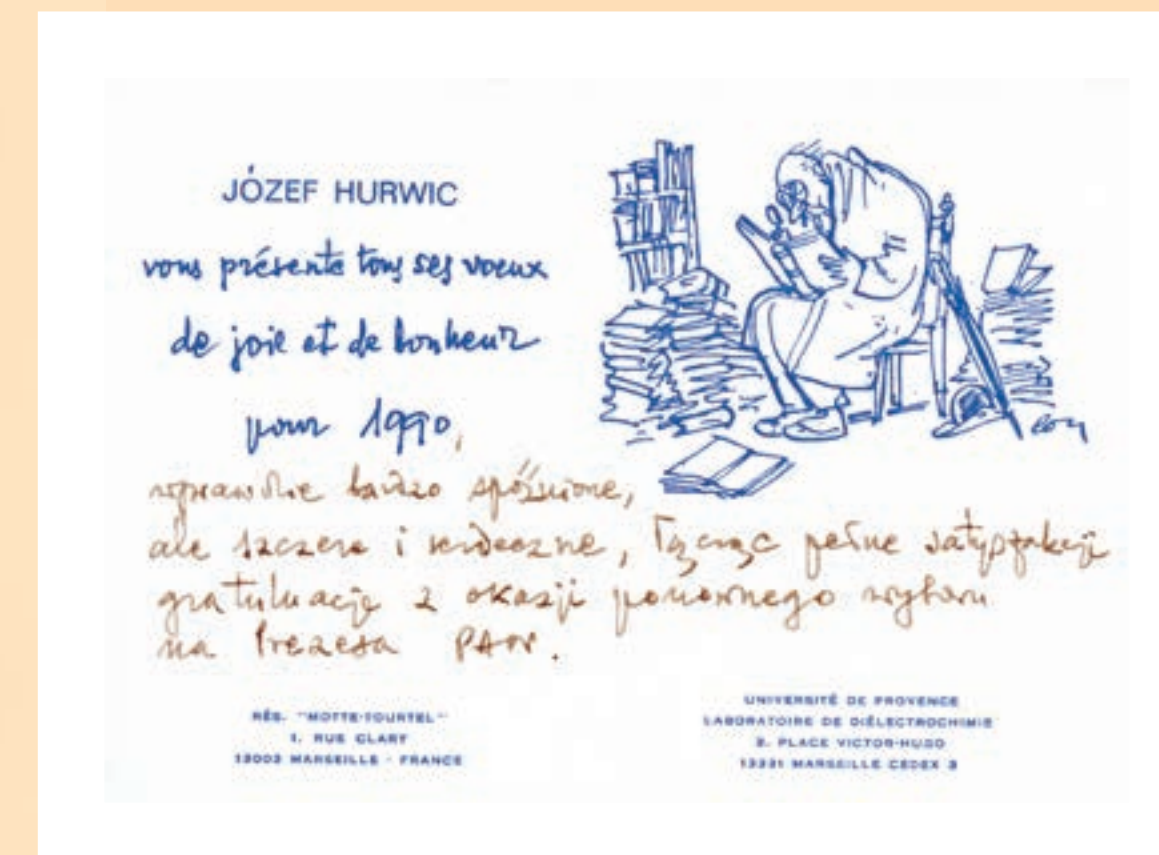 JÓZEF HURWIC
vous présente tous ses voeux
de joie et de bonheur
pour 1990,
wprawdzie bardzo spóźnione,
ale szczere i serdeczne, łącząc pełne satysfakcji
gratulacje z okazji ponownego wyboru
na Prezesa PAN.
RÉS. "MOTTE-TOURTEL"
1, RUE CLARY
13003 MARSEILLE - FRANCE
UNIVERSITÉ DE PROVENCE
LABORATOIRE DE DIÉLECTROCHIMIE
3, PLACE VICTOR-HUGO
13331 MARSEILLE CEDEX 3